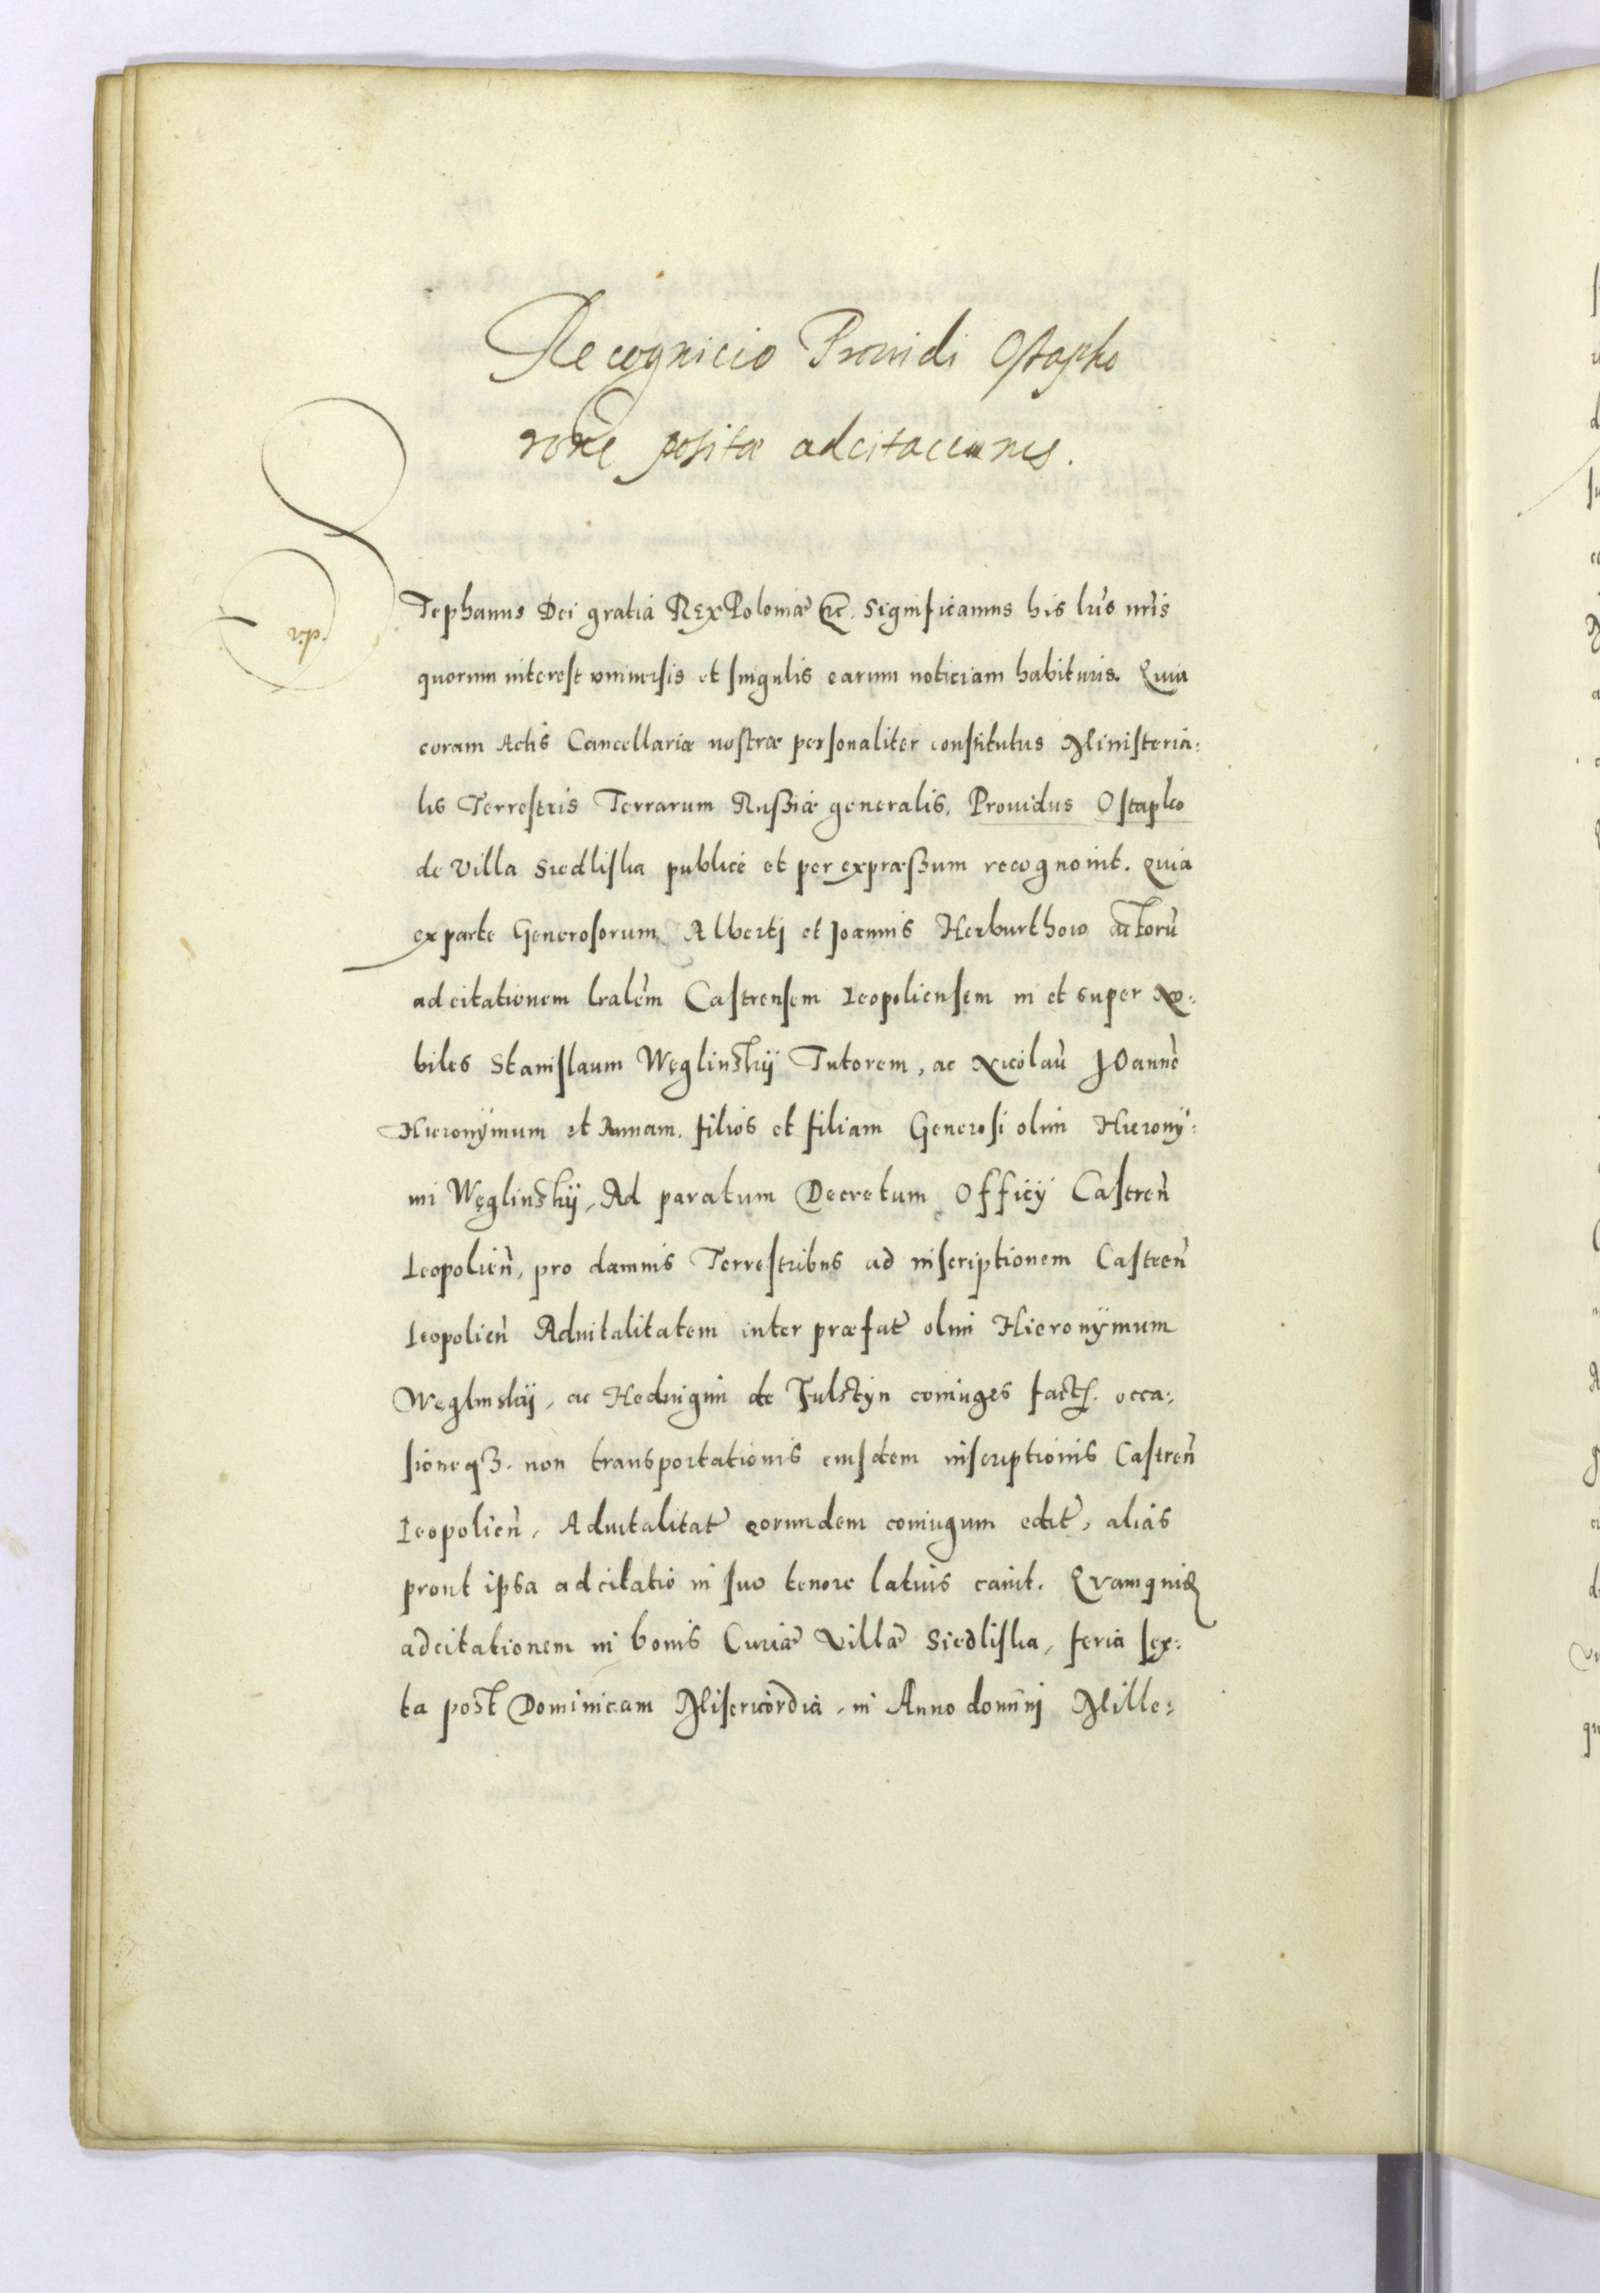 Recognicio Prouidi Ostapko
rone positæ adcitacionis.
Stephanus Dei gratia Rex Poloniæ etc. Significamus his lrīs nrīs
quorum interest vniuersis et singulis earum noticiam habituris. Quia
coram Actis Cancellariæ nostræ personaliter constitutus Ministeria:
lis Terrestris Terrarum Rußiæ generalis, Prouidus Ostapko
de Villa Siedliska publicè et per expræßum recognouit. Quia
ex parte Generosorum Albertj et Joannis Herburthow actorū
adcitationem lralem̄ Castrensem Leopoliensem in et super No:
biles Stanislaum Węglinskij Tutorem, ac Nicolaū Joannē
Hieronÿmum et Annam, filios et filiam Generosi olim Hieronÿ:
mi Węglinskij, Ad paratum Decretum Officÿ Castren̄
Leopolien̄, pro damnis Terrestribus ad inscriptionem Castren̄
Leopolien̄ Aduitalitatem inter præfat̄ olim Hieronÿmum
Węglinskij, ac Heduigim de Fulstÿn coniuges fact. occa:
sioneq3. non transportationis eiusdem inscriptionis Castren̄
Leopolien̄, Aduitalitat̄ eorundem coniugum edit̄, aliàs
prout ipsa adcitatio in suo tenore latius canit. Quamquid
adcitationem in bonis Curiæ Villæ Siedliska, feria sex:
ta post Dominicam Misericordia, in Anno dominj Mille: